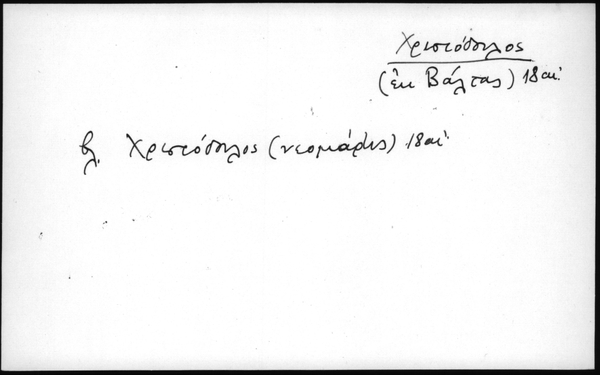 Χριστόδουλος
(ἐκ Βάλτας) 18 αἰ.
βλ. Χριστόδουλος (νεομάρτυς) 18 αἰ.